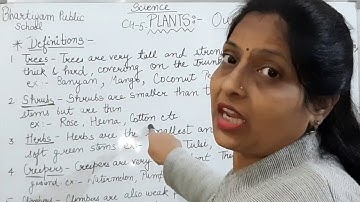 Bhartiyam Public School
Science
Ch-5. PLANTS:- Ou
* Definitions-
1 Trees - Trees are very tall and strong
thick & hard, covering on the trunk
ex:- Banyan, Mango, Coconut
2 Shrubs - Shrubs are smaller than
stems but are thin
ex:- Rose, Heena, Cotton etc
3 Herbs - Herbs are the smallest and
soft green stems
4 Creepers - Creepers are very
ground. ex- Watermelon,
5 Climbers - Climbers are also weak